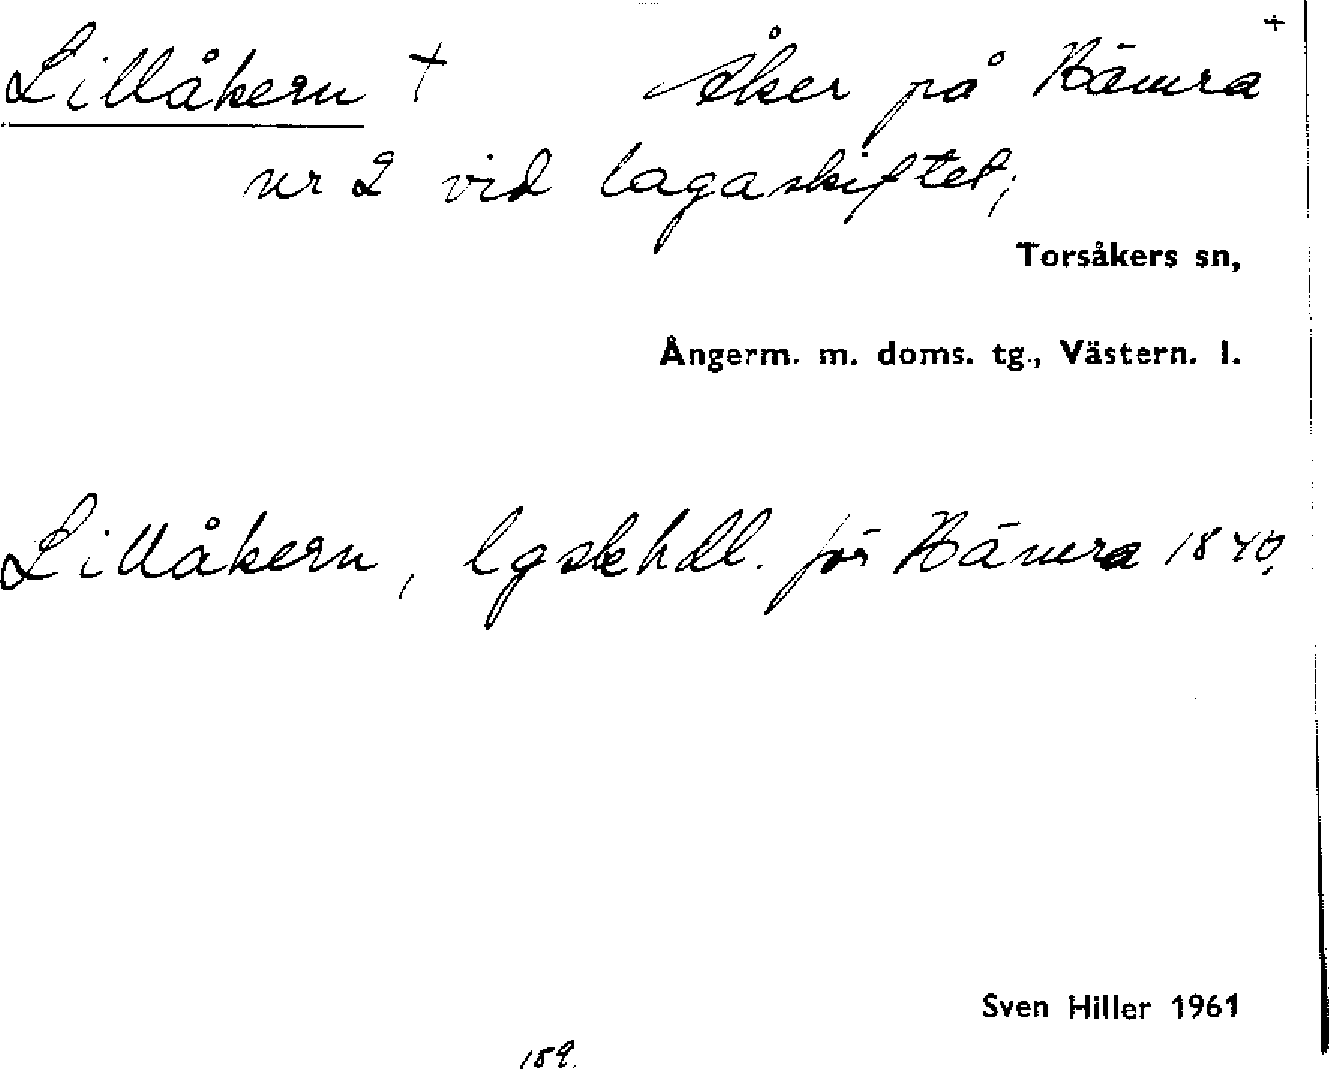 +
Lillåkern † Åker på Hämra
nr 2 vid lagaskiftet;
Torsåkers sn,
Ångerm. m. doms. tg., Västern. l.
Lillåkern, lgskhdl. för Hämra 1840.
Sven Hiller 1961
159.